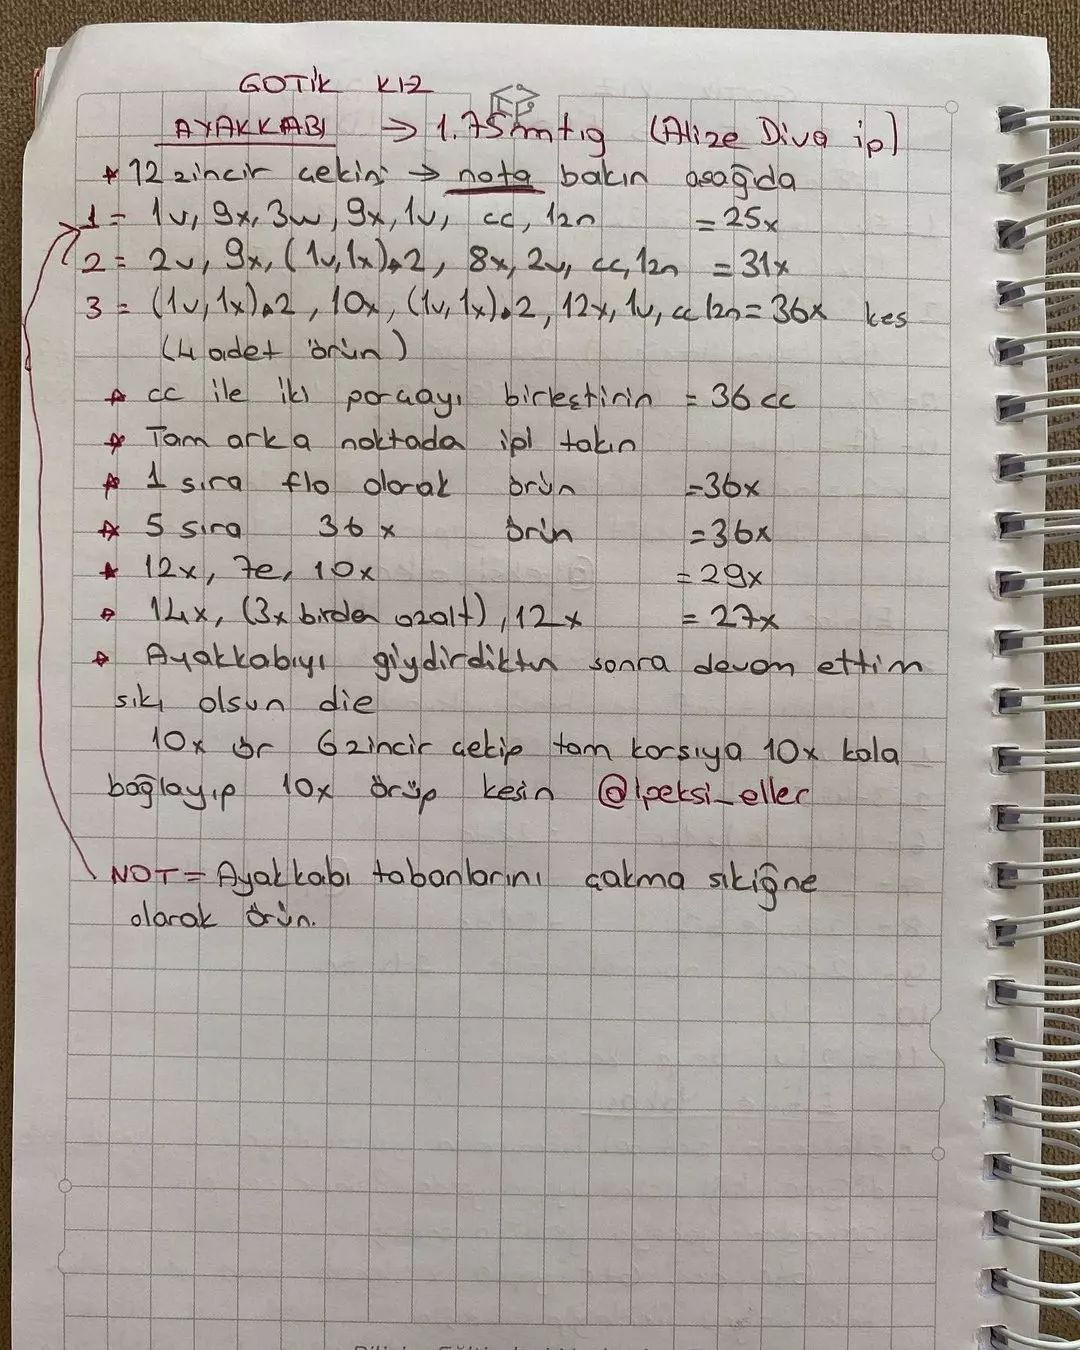 GOTİK KIZ
AYAKKABI → 1.75mtığ (Alize Diva ip)
* 12 zincir çekin → nota bakın aşağıda
1 = 1v, 9x, 3w, 9x, 1v, cc, 1zn = 25x
2 = 2v, 9x, (1v, 1x)*2, 8x, 2v, cc, 1zn = 31x
3 = (1v, 1x)*2, 10x, (1v, 1x)*2, 12x, 1v, cc 1zn = 36x kes
(4 adet örün)
* cc ile iki parçayı birleştirin = 36 cc
* Tam arka noktada ipi takın
* 1 sıra flo olarak örün = 36x
* 5 sıra 36 x örün = 36x
* 12x, 7e, 10x = 29x
* 14x, (3x birden azalt), 12x = 27x
* Ayakkabıyı giydirdiktn sonra devam ettim
sıkı olsun die
10x ör 6 zincir çekip tam karşıya 10x kala
bağlayıp 10x örüp kesin @ipeksi_eller
NOT = Ayakkabı tabanlarını çakma sıkiğne
olarak örün.